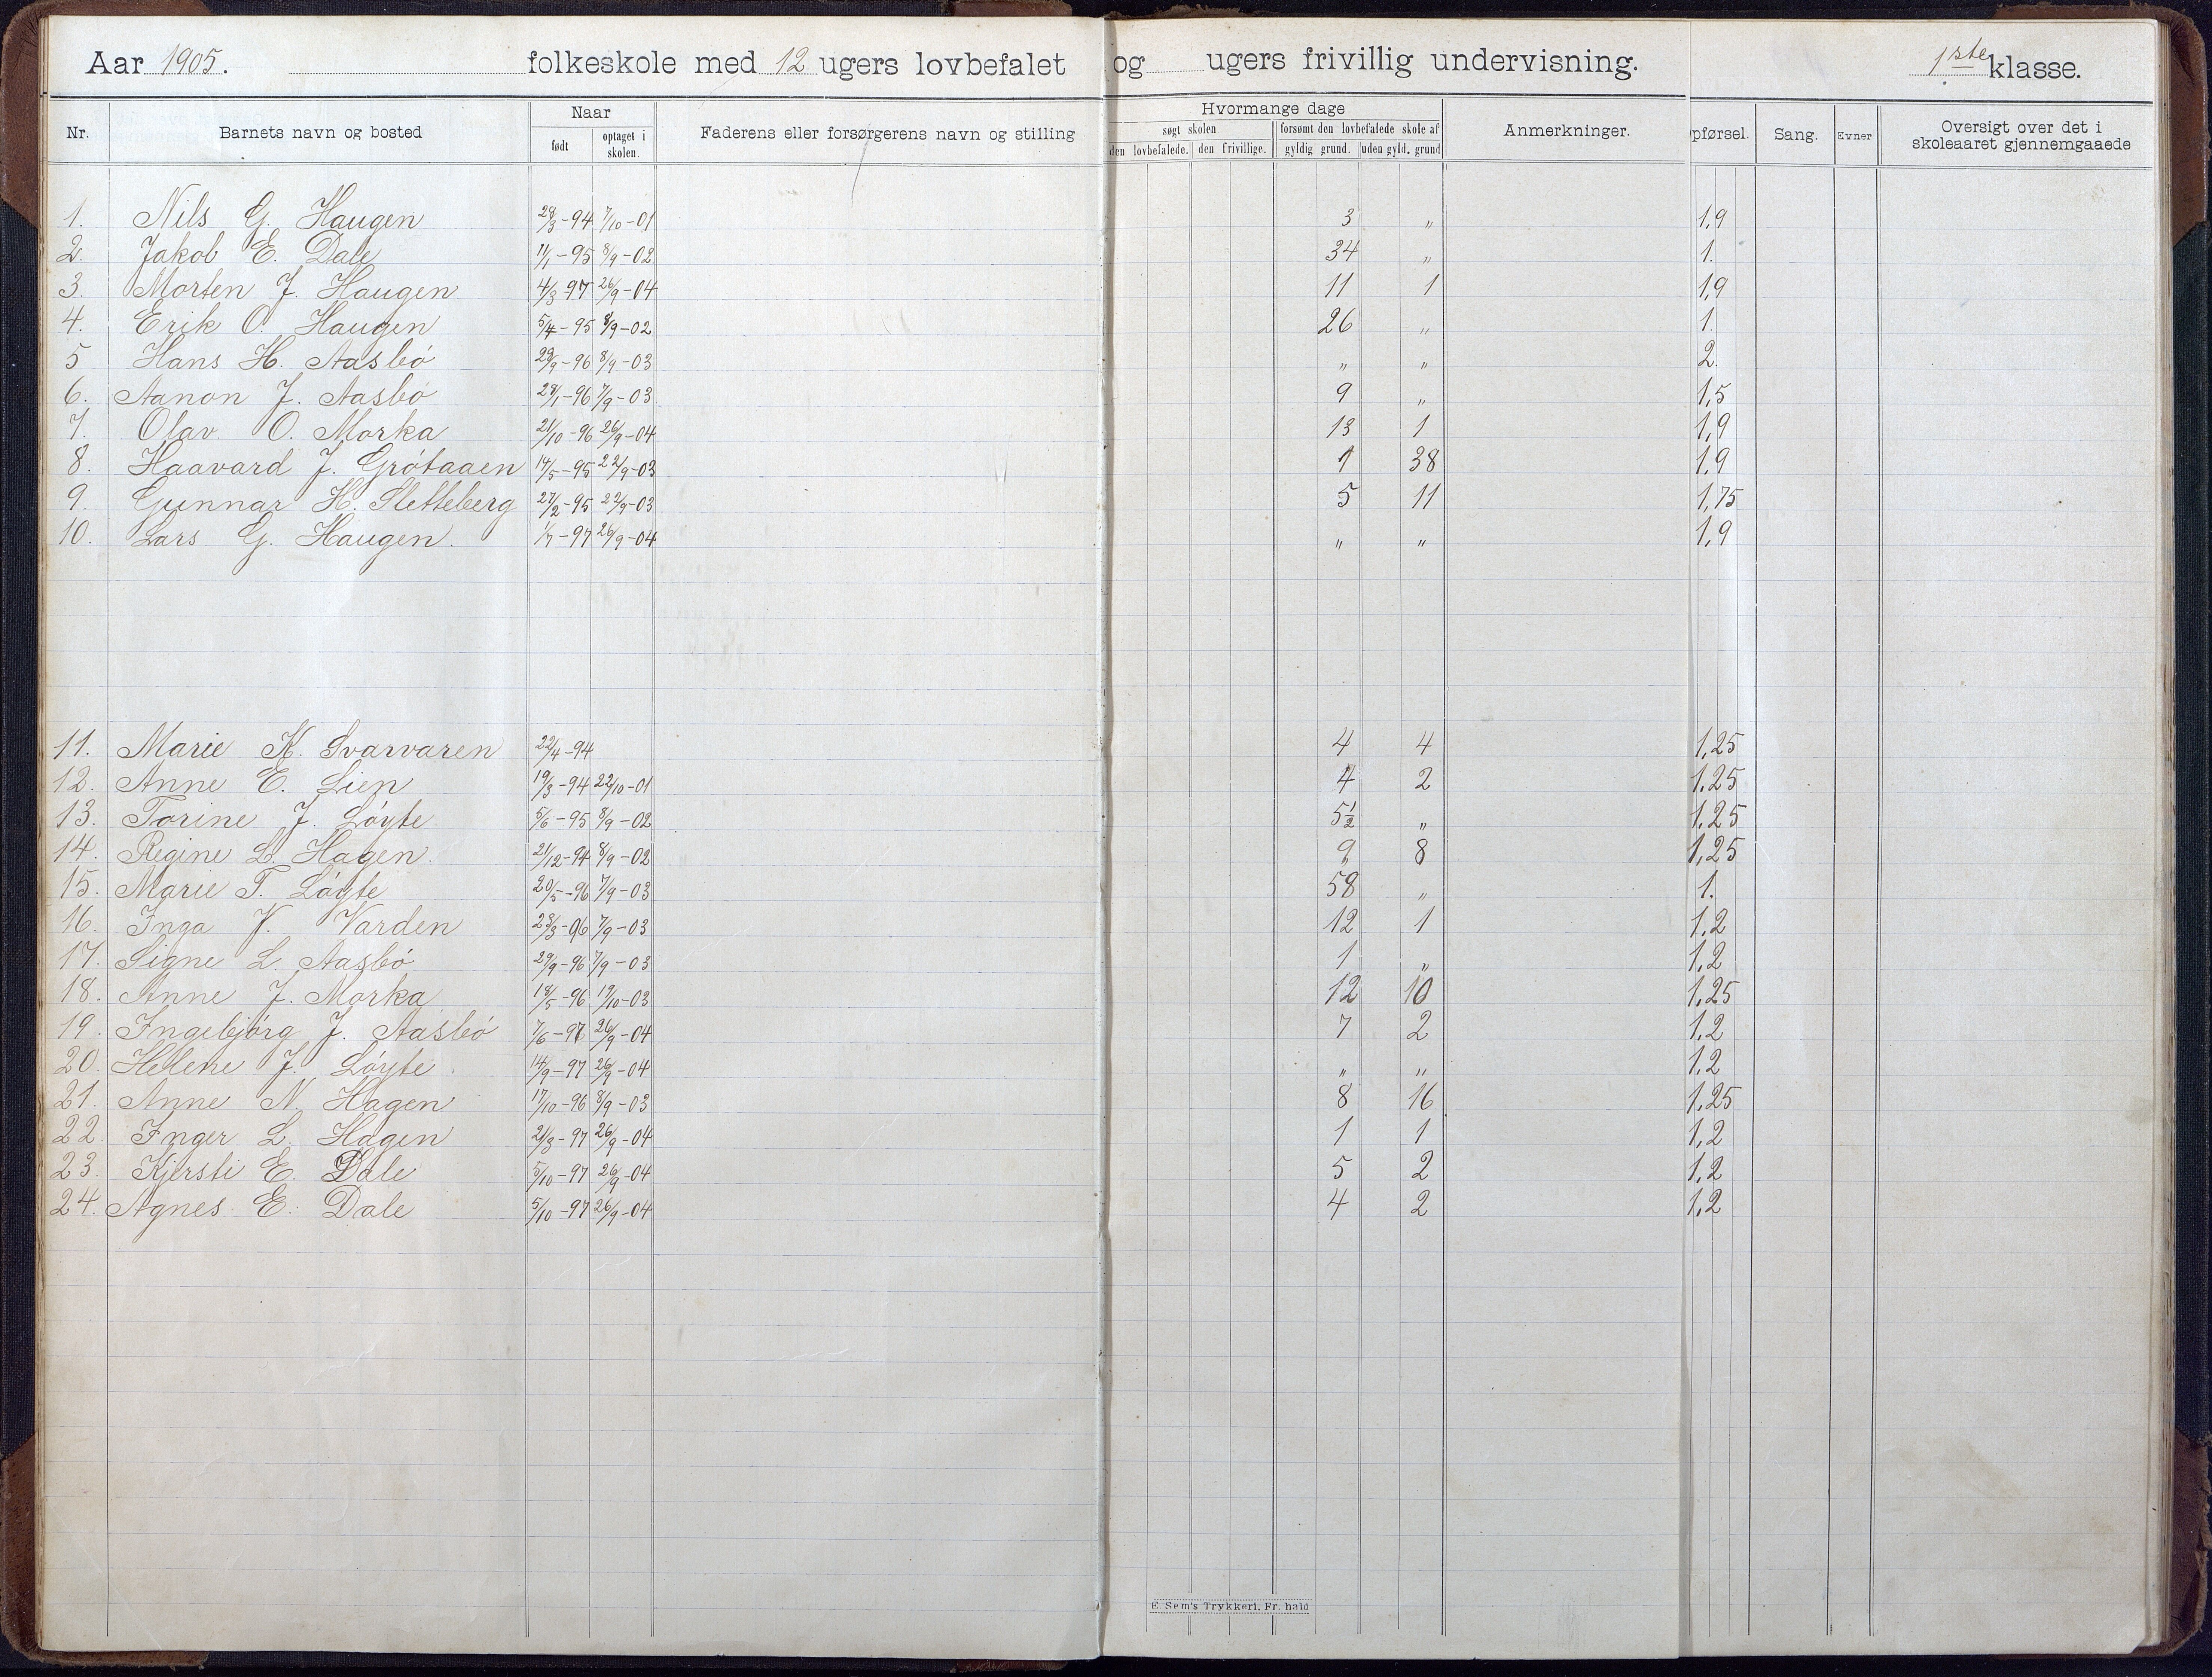 Aar 1905. folkeskole med 12 ugers lovbefalet og ugers frivillig undervisning. 1ste klasse.
Nr. Barnets navn og bosted Naar Faderens eller forsørgerens navn og stilling Hvormange dage Anmerkninger. pførsel. Sang. Evner Oversigt over det i skoleaaret gjennemgaaede
født optaget i skolen. søgt skolen forsømt den lovbefalede skole af
den lovbefalede. den frivillige. gyldig grund. uden gyld. grund
1. Nils G. Haugen 28/3-94 7/10-01 3 „ 1,9
2. Jakob E. Dale 11/1-95 8/9-02 34 „ 1.
3. Morten J. Haugen 4/3 97 26/9-04 11 1 1,9
4. Erik O. Haugen 5/4-95 8/9-02 26 „ 1.
5 Hans H. Aasbö 29/9-96 8/9-03 „ „ 2.
6. Aanon J. Aasbö 28/1-96 7/9-03 9 „ 1,5
7. Olav O. Morka 21/10-96 26/9-04 13 1 1,9
8. Haavard J. Grötaaen 14/5-95 22/9-03 1 38 1,9
9. Gunnar H. Sletteberg 27/2-95 22/9-03 5 11 1,75
10. Lars G. Haugen. 1/7-97 26/9-04 „ „ 1,9
11. Marie K. Svarvaren 22/4-94 4 4 1,25
12. Anne E. Lien 19/3-94 22/10-01 4 2 1.25
13. Torine J. Löyte 5/6-95 8/9-02 5½ „ 1.25
14. Regine L. Hagen. 21/12-94 8/9-02 9 8 1,25
15. Marie T. Löyte 20/5-96 7/9-03 58 „ 1.
16. Inga J. Varden 23/3-96 7/9-03 12 1 1,2
17. Signe L. Aasbö 29/9-96 7/9-03 1 „ 1,2
18. Anne J. Morka 18/5-96 19/10-03 12 10 1,25
19. Ingebjörg J. Aasbö 7/6-97 26/9-04 7 2 1,2
20. Helene J. Löyte 14/9-97 26/9-04 „ „ 1,2
21. Anne N. Hagen 17/10-96 8/9-03 8 16 1,25
22. Inger L. Hagen 21/3-97 26/9-04 1 1 1,2
23. Kjersti E. Dale 5/10-97 26/9-04 5 2 1,2
24. Agnes E. Dale 5/10-97 26/9-04 4 2 1,2
E. Sem's Trykkeri, Fr. hald